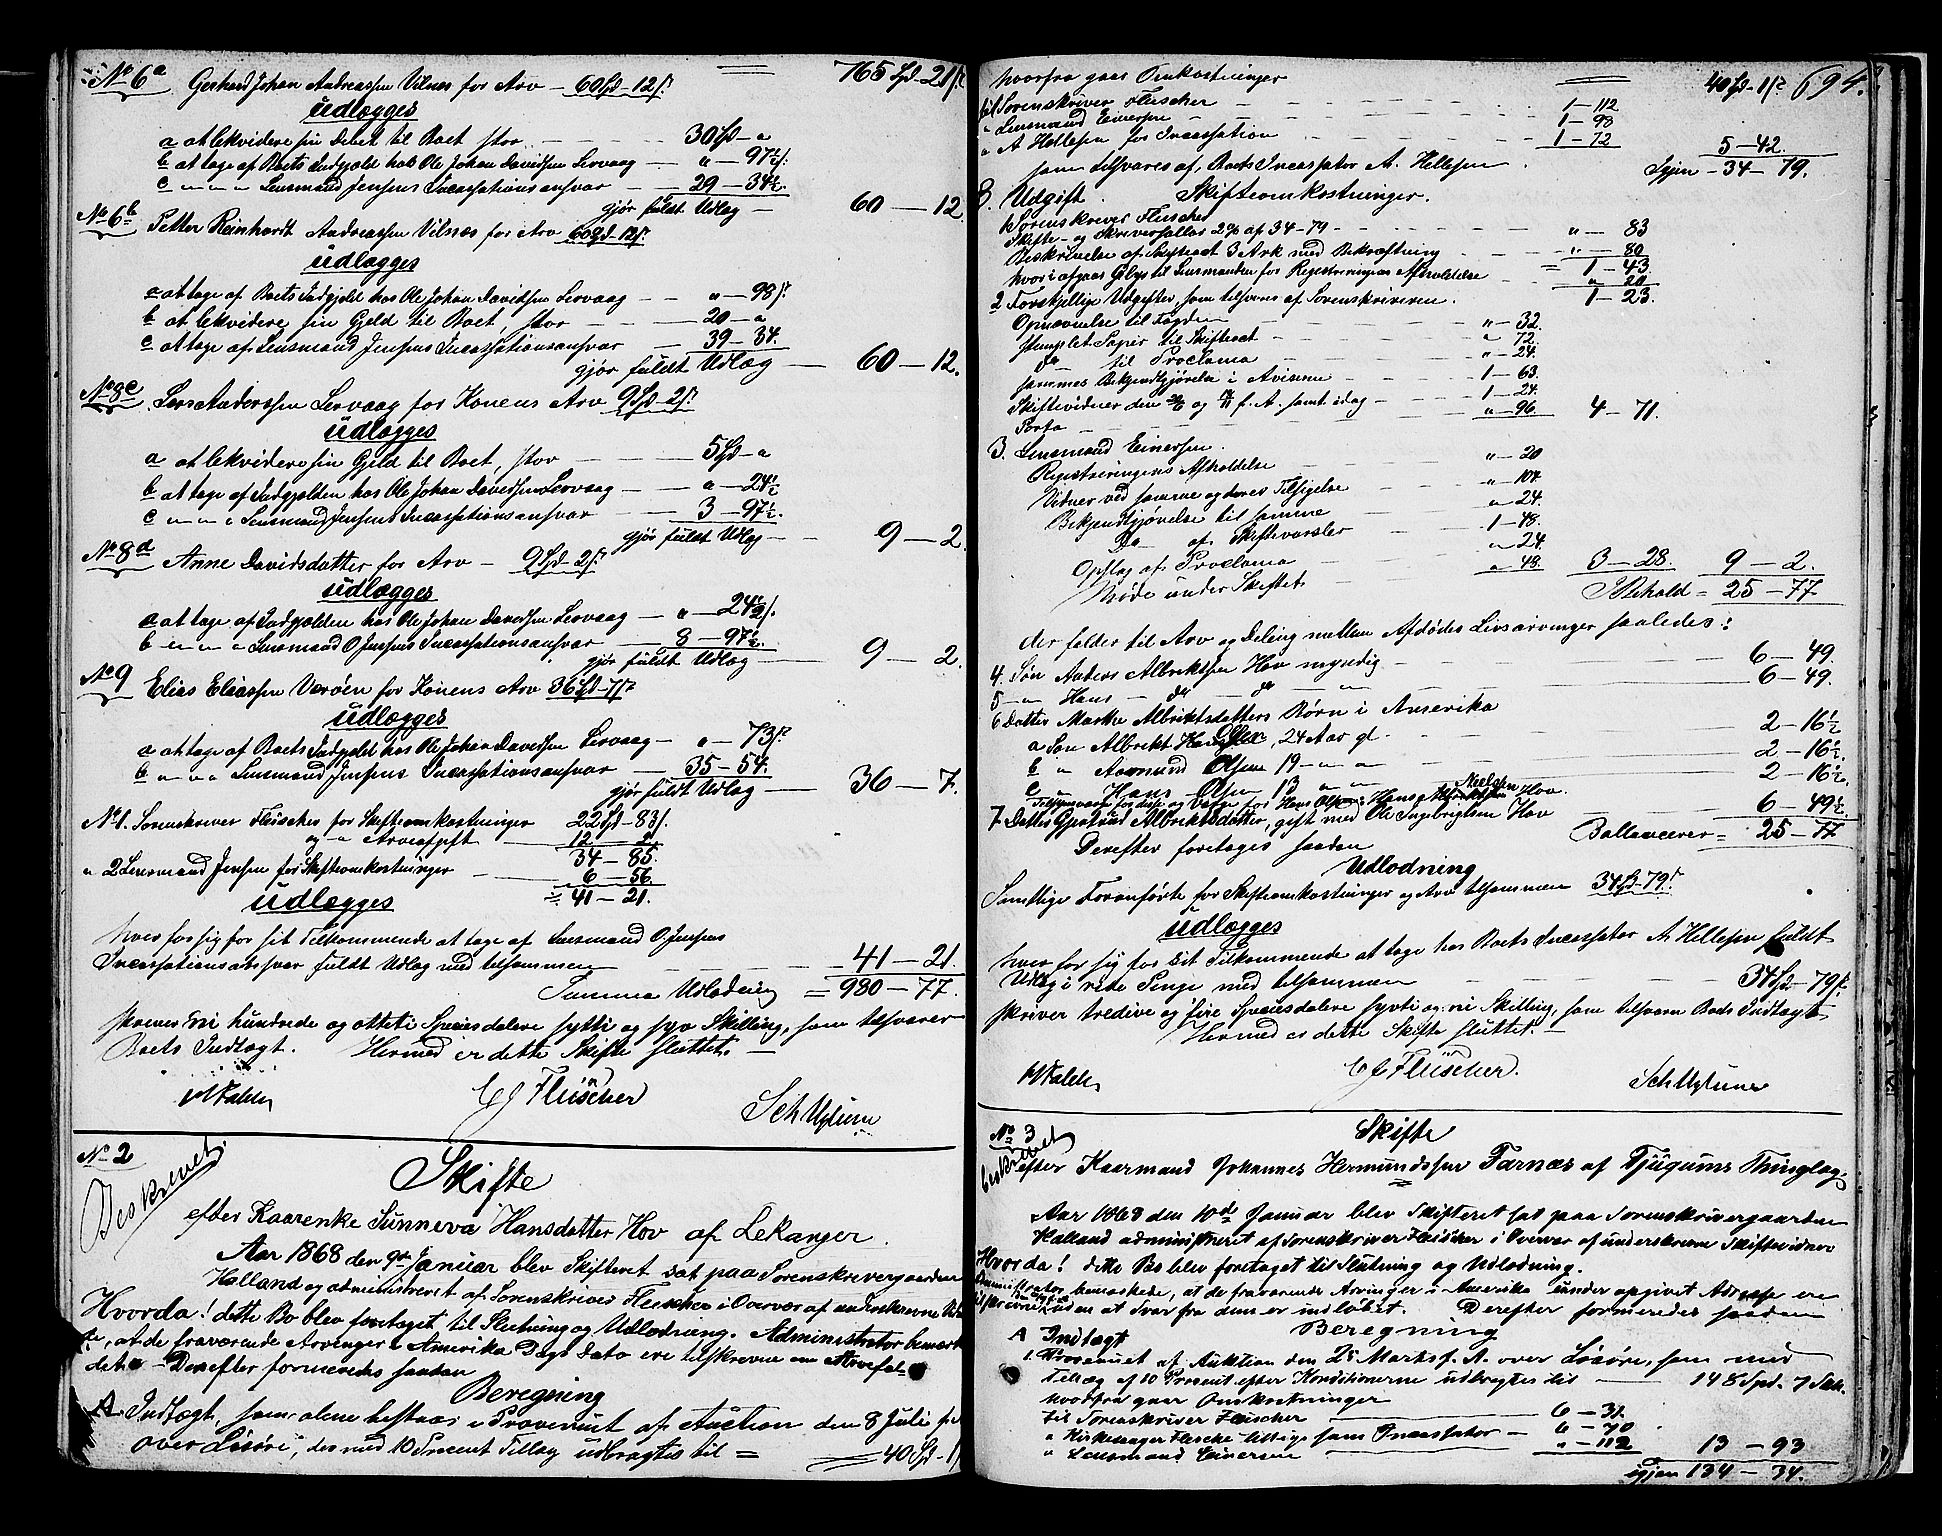 765 Spd - 21 s.
No 6a Gerhard Johan Andreassen Vilnæs for Arv - 60 Spd - 12 s.
udlægges
a at lekvidere sin Debet til Boet, stor 30 Spd - "
b at tage af Boets Indgjeld hos Ole Johan Davidsen Lervaag - " - 97½ s.
c " " " " Lensmand Jensens Incassationsansvar - 29 - 34½.
gjør fuldt Udlæg - 60 - 12.
No 6b Petter Reinhardt Andreassen Vilnæs for Arv 60 Spd - 12 s.
udlægges
a at tage af Boets Indgjeld hos Ole Johan Davidsen Lervaag - " - 98 s.
b at lekvidere sin Gjeld til Boet, stor - 20 - "
c at tage af Lensmand Jensens Incassationsansvar - 39 - 34.
gjør fuldt Udlæg - 60 - 12.
No 8c Lars Anderssen Lervaag for Konens Arv 9 Spd - 2 s.
udlægges
a at lekvidere sin Gjeld til Boet, stor - 5 Spd - "
b at tage af Indgjælden hos Ole Johan Davidsen Lervaag - " - 24½
c " " " " Lensmand Jensens Incassationsansvar - 3 - 97½.
gjør fuldt Udlæg - 9 - 2.
No 8d Anne Davidsdatter for Arv - 9 Spd - 2 s.
udlægges
a at tage af Indgjælden hos Ole Johan Davidsen Lervaag - " - 24½ s.
b " " " " Lensmand O Jensens Incassationsansvar - 8 - 97½.
gjør fuldt Udlæg - 9 - 2.
No 9 Elias Eliassen Værøen for Konens Arv 36 Spd - 7 s.
udlægges
a at tage af Boets Indgjeld hos Ole Johan Davidsen Lervaag - " - 73 s.
b " " " " Lensmand Jensens Incassationsansvar - 35 - 54.
gjør fuldt Udlæg - 36 - 7.
No 1. Sorenskriver Fleischer for Skifteomkostninger 22 Spd - 83 s.
og " " Arveafgift - 12 - 2.
34 - 85.
" 2 Lensmand Jensen for Skifteomkostninger - 6 - 56.
= 41 - 21.
udlægges
hver for sig for sit Tilkommende at tage af Lensmand O Jensens
Incassationsansvar fuldt Udlæg med tilsammen - 41 - 21.
Summa Udlodning = 980 - 77.
skriver Ni hundrede og otteti Speciesdalere sytti og syv Skilling, som tilsvarer
Boets Indtægt. Hermed er dette Skifte sluttet. -
CJ Fleischer
No 2
Beskrevet
Skifte
efter Kaarenke Sunneva Hansdatter Hov af Lekanger.
Aar 1868 den 9de Januar blev Skifteret sat paa Sorenskrivergaarden
Halland og administreret af Sorenskriver Fleischer i Overvær af underskrevne
Hvorda! dette Bo blev foretaget til Slutning og Udlodning. Administrator bemærk
te, at de fraværende Arvinger i Amerika Dags Dato ere tilskrevne om Arvefal-
det. - Derefter formeredes saadan
Beregning
A. Indtægt, som alene bestaar i Provenuet af Auction den 8 Juli f.
over Løsøre, der med 10 Procent Tillæg udbragtes til = 40 Spd - 1
694.
hvorfra gaar Omkostninger 40 Spd - 1 s.
til Sorenskriver Fleischer - 1 - 112
" Lensmand Einersen - 1 - 98
" A Hellesen for Incassation - 1 - 72 5 - 42.
som tilsvares af Boets Incassator A. Hellesen. Igjen - 34 - 79.
B. Udgift. Skifteomkostninger.
1 Sorenskriver Fleischer
Skifte- og Skriversallar 2% af 34 - 79 - " - 83
Beskrivelse af Skifteact 3 Ark med Bekræftning - " - 80
= 1 - 43.
hvori afgaar til Lensmanden for Registreringens Afholdelse " 20
1 - 23.
2 Forskjellige Udgifter, som tilsvares af Sorenskriveren.
Opnævnelse til Fogden " - 32.
stemplet Papir til Skifteact " 72.
do til Proclama " - 24.
sammes Bekjendtgjørelse i Aviserne - 1 - 63.
Skiftevidner den og f. A. samt idag - 1 - 24.
Porto - " 96. 4 - 71.
3. Lensmand Einersen.
Registreringens Afholdelse " - 20
Vidner ved samme og deres Tilsigelse " - 104
Bekjendtgjørelse til samme " 24.
Do af Skiftevarsler 1 - 48.
Opslag af Proclama " 24.
Møde under Skiftet " 48. 3 - 28. 9 - 2.
I Behold = 25 - 77
der falder til Arv og Deling mellem Afdødes Livsarvinger saaledes:
4. Søn Anders Albriktsen Hov myndig - 6 - 49.
5 - " Hans - do - do - " - 6 - 49.
6 Datter Marthe Albriktsdatters Børn i Amerika
a Søn Albrikt Olsen, 24 Aar gl. 2 - 16½
b " Aamund Olsen 19 - " " 2 - 16½
c " Hans Olsen 13 " " 2 - 16½
7. Datter Gjertrud Albriktsdatter, gift med Ole Ingebrigtsen Hov 6 - 49½
Ballancerer = 25 - 77
Derefter foretages saadan
Udlodning
Samtlige Foranførte for Skifteomkostninger og Arv tilsammen 34 Spd - 79 s.
udlægges
hver for sig for sit Tilkommende at tage hos Boets Incassator A. Hellesen fuldt
Udlæg i rede Penge med tilsammen - 34 Spd - 79 s.
skriver tredive og fire Speciesdalere sytti og ni Skilling, som tilsvarer Boets Indtægt
Hermed er dette Skifte sluttet. -
CJ Fleischer.
No 3
beskrevet
Skifte
efter Kaarmand Johannes Hermundssen Farnæs af Tjugums Thinglag.
Aar 1868 den 10de Januar blev Skifteret sat paa Sorenskrivergaarden
Halland administreret af Sorenskriver Fleischer i Overvær af underskrevne Skiftevidner
Hvorda! dette Bo blev foretaget til Slutning og Udlodning.
Administrator bemærkede, at de fraværende Arvinger i Amerika under opgivet Adresse ere
tilskrevne, uden at Svar fra dem er indløbet. Derefter formeredes saadan
Beregning
A Indtægt
1. Provenuet af Auktion den 2den Marts f. A. over Løsøre, som med
Tillæg af 10 Procent efter Konditionerne udbragtes til - 148 Spd. 7 Sk.
hvorfra gaar Omkostninger
til Sorenskriver Fleischer - 6 - 31.
" Kirkesanger Flesche tillige som Incassator - 6 - 70
" Lensmand Einersen - " - 112 13 - 93
igjen 134 - 34.